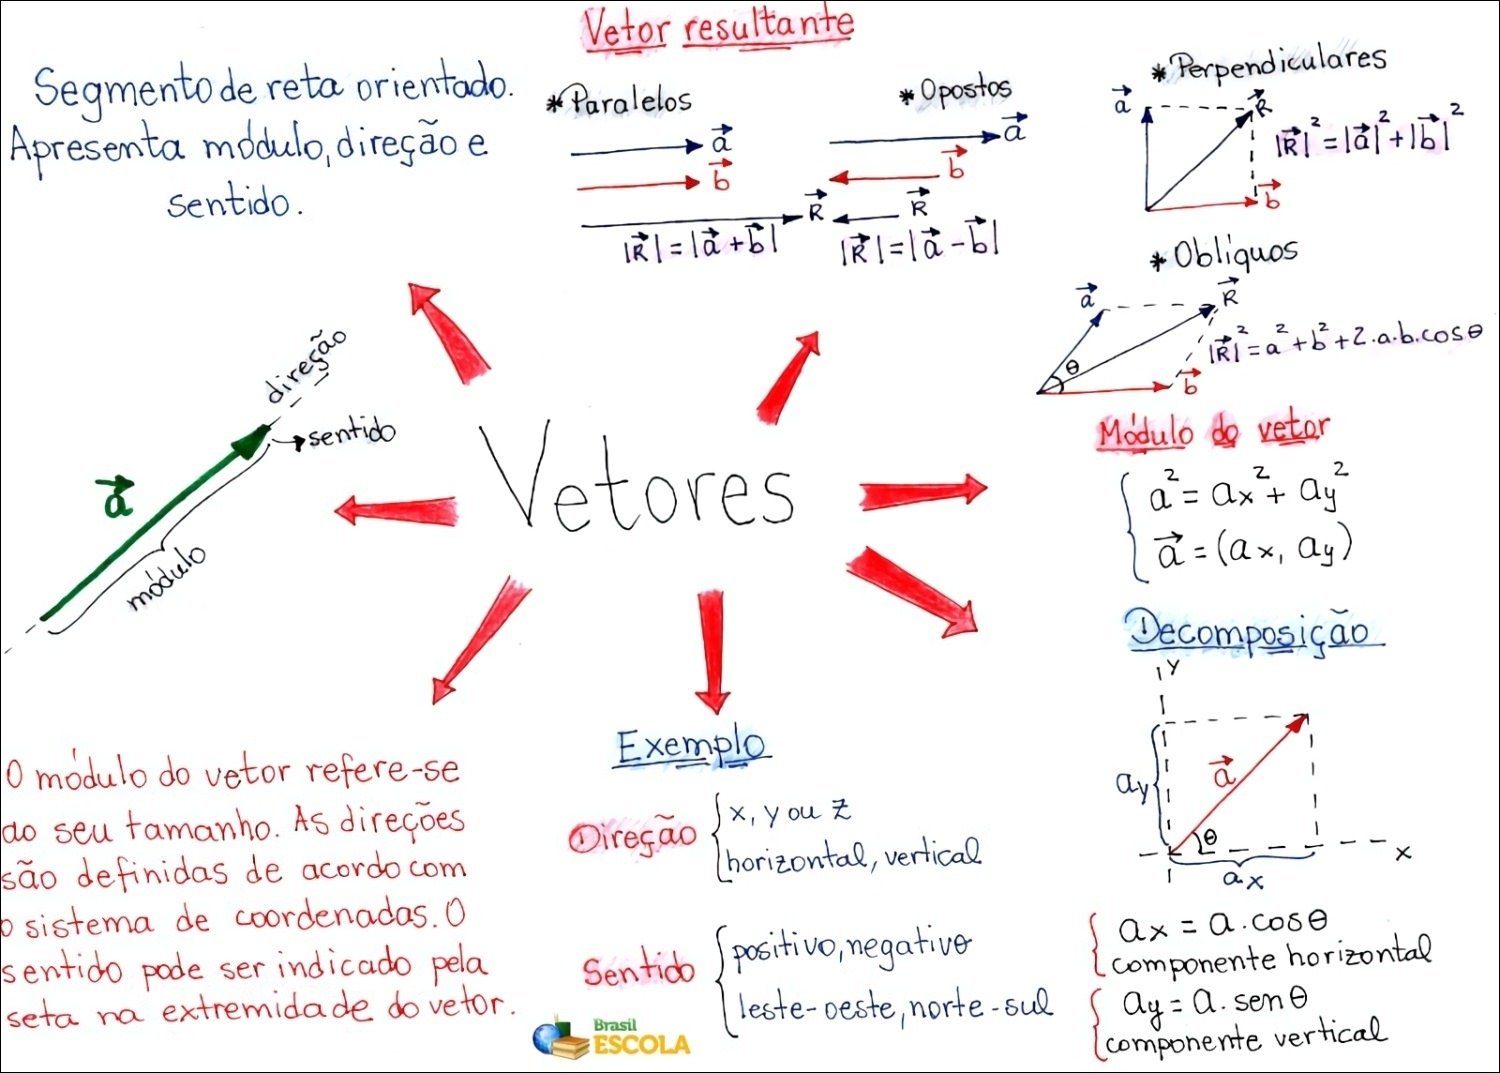 Vetor resultante
Segmento de reta orientado.
Apresenta módulo, direção e
sentido.
*Paralelos
a
b
R
|R| = |a + b|
*Opostos
a
b
R
|R| = |a - b|
*Perpendiculares
a
R
b
|R|² = |a|² + |b|²
*Oblíquos
a
R
θ
b
|R|² = a² + b² + 2.a.b.cosθ
direção
sentido
a
módulo
Vetores
Módulo do vetor
a² = ax² + ay²
a = (ax, ay)
Decomposição
y
ay
a
θ
x
ax
ax = a.cosθ
componente horizontal
ay = a.senθ
componente vertical
O módulo do vetor refere-se
ao seu tamanho. As direções
são definidas de acordo com
o sistema de coordenadas. O
sentido pode ser indicado pela
seta na extremidade do vetor.
Exemplo
Direção
x, y ou z
horizontal, vertical
Sentido
positivo, negativo
leste-oeste, norte-sul
Brasil
ESCOLA